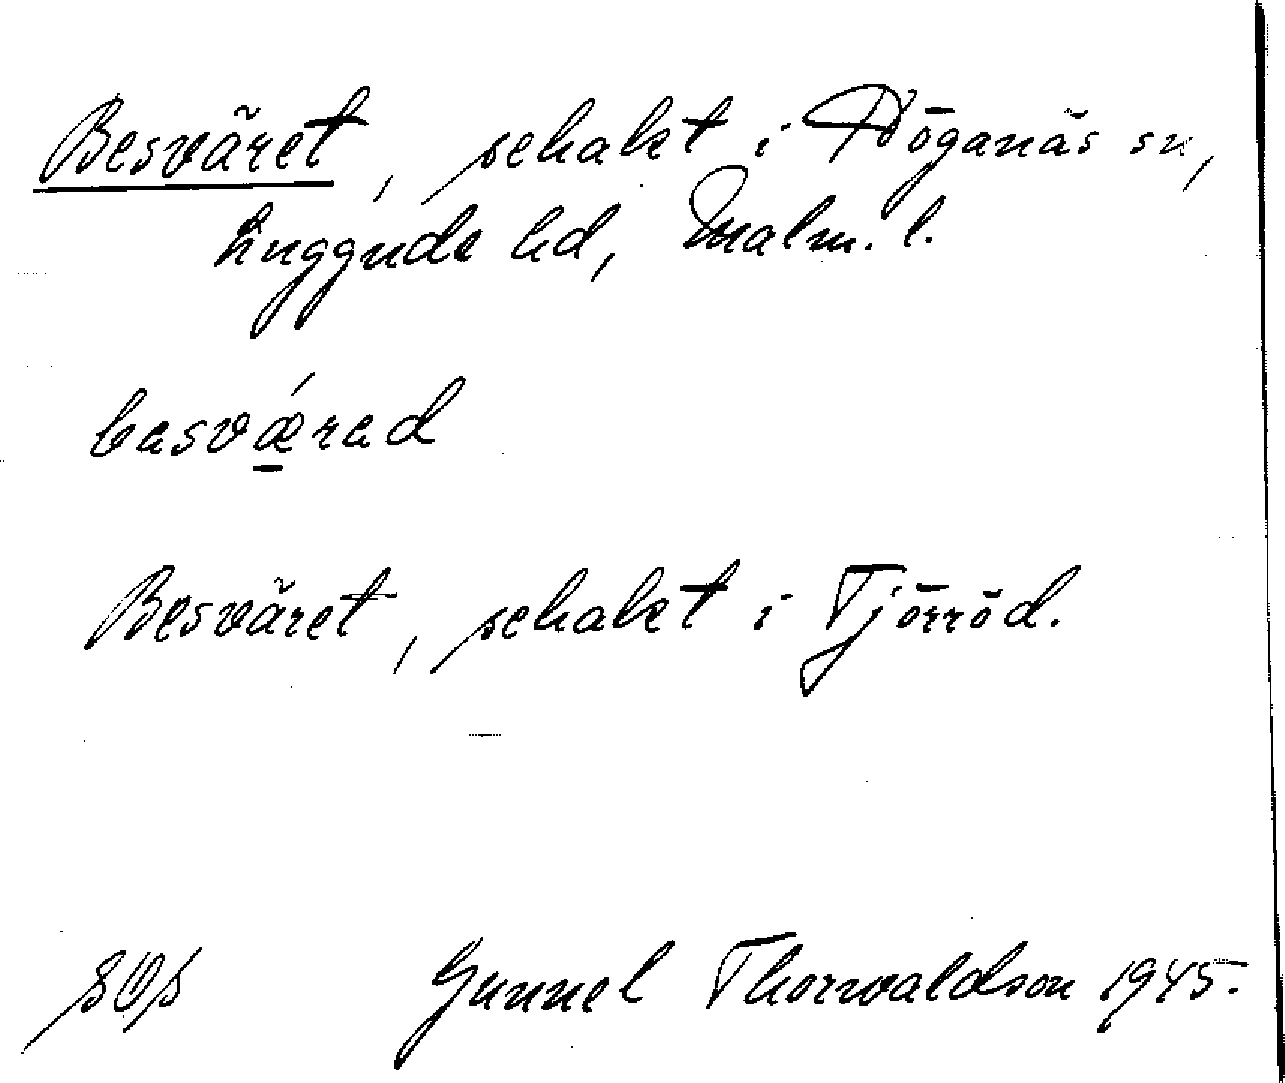 Besväret, schakt i Höganäs sn,
Luggude hd, Malm. l.
basvǽ̱rad
Besväret, schakt i Tjörröd.
Gunnel Thorwaldson 1945.